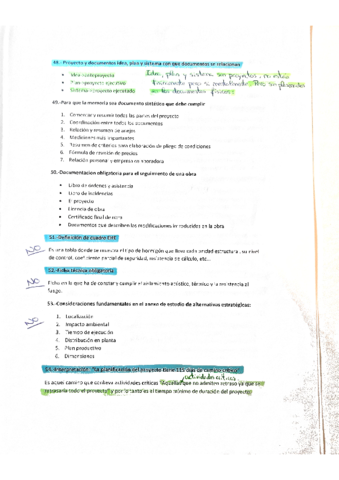 48.- Proyecto y documentos Idea, plan y sistema con que documentos se relacionan
• Idea-anteproyecto
• Plan-proyecto ejecutivo
• Sistema-proyecto ejecutado
Idea, plan y sistema son proyectos, no está
son los documentos físicos
49.-Para que la memoria sea documento sintético que debe cumplir
1. Comenzar y resumir todas las partes del proyecto
2. Coordinación entre todos los documentos
3. Relación y resumen de anejos
4. Mediciones más importantes
5. Resumen de criterios para elaboración de pliego de condiciones
6. Fórmula de revisión de precios
7. Relación personal y empresa redactora
50.-Documentación obligatoria para el seguimiento de una obra
• Libro de ordenes y asistencia
• Libro de incidencias
• El proyecto
• Licencia de obra
• Certificado final de obra
• Documentos que describen las modificaciones introducidas en la obra
51.-Definición de cuadro EHE
NO
Es una tabla donde se muestra el tipo de hormigón que lleva cada unidad estructural, su nivel
de control, coeficiente parcial de seguridad, resistencia de cálculo, etc..
NO
Ficha en la que ha de constar y cumplir el aislamiento acústico, térmico y la resistencia al
fuego.
NO
53.-Consideraciones fundamentales en el anejo de estudio de alternativas estratégicas:
1. Localización
2. Impacto ambiental
3. Tiempo de ejecución
4. Distribución en planta
5. Plan productivo
6. Dimensiones
54.-Interpretación: "La planificación del proyecto tiene 115 días de camino crítico"
actividades críticas
Es aquel camino que conlleva actividades críticas. Aquellas que no admiten retraso ya que se
retrasaría todo el proyecto y por lo tanto es el tiempo mínimo de duración del proyecto.